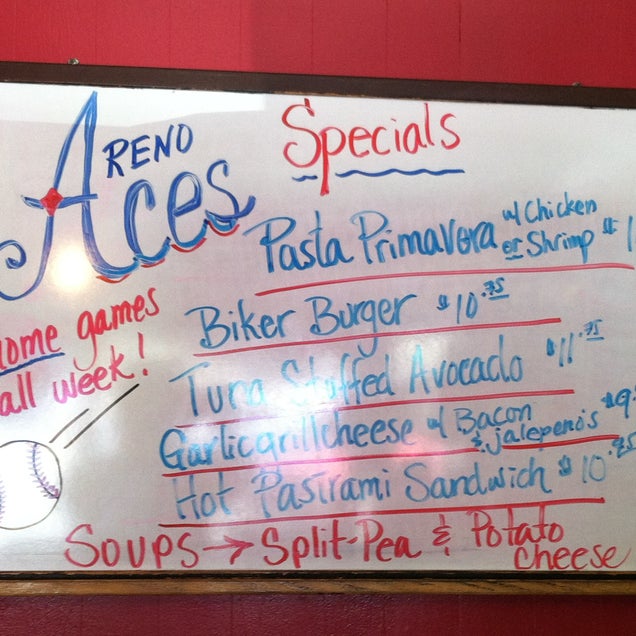 RENO
Aces
Home games
all week!
Specials
Pasta Primavera w/ Chicken
or Shrimp $1
Biker Burger $10.75
Tuna Stuffed Avocado $11.75
Garlicgrillcheese w/ Bacon
& jalepeno's $9
Hot Pastrami Sandwich $10.75
Soups → Split-Pea & Potato
cheese